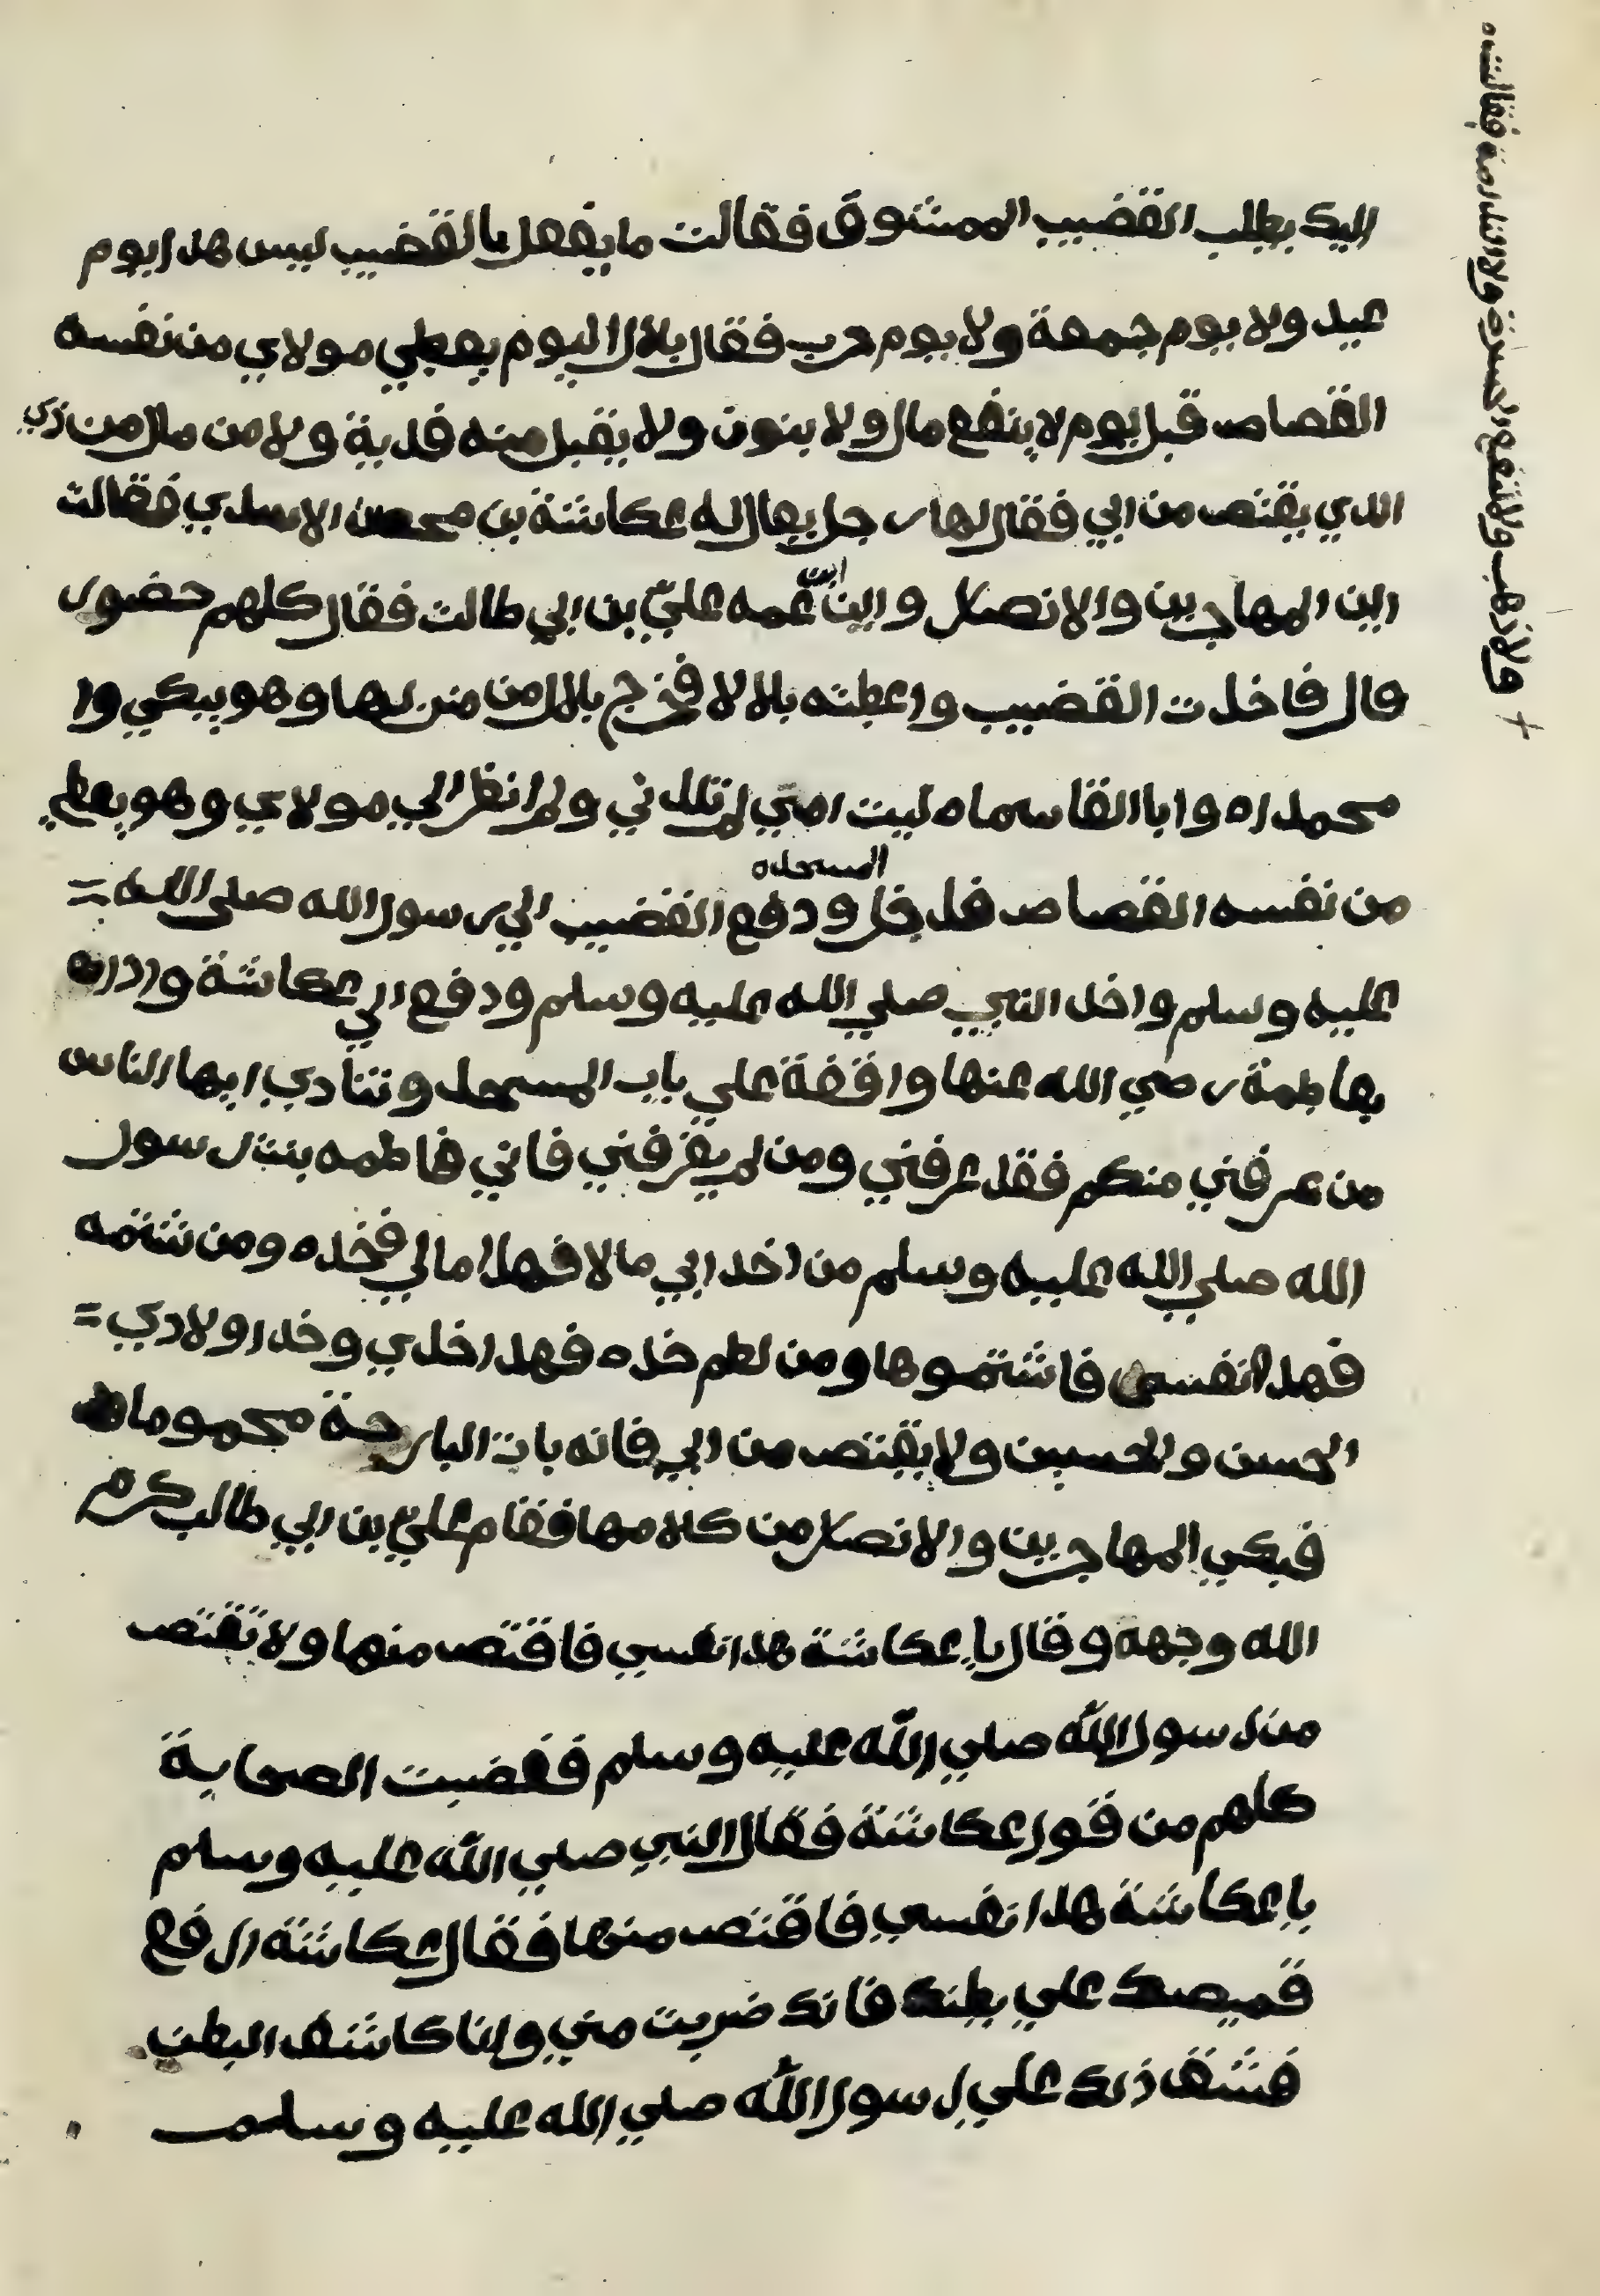 اليك يطلب القضيب الممشوق فقالت ما يفعل بالقضيب ليس هدا يوم
عيد ولا يوم جمعة ولا يوم حرب فقال بلال اليوم يعطي مولاي من نفسه
القصاص قبل يوم لا ينفع مال ولا بنون ولا يقبل منه فدية ولا من مال من
الدي يقتص من ابي فقال لها رجل يقال له عكاشة بن محصن الاسدي فقالت
اين المهاجرين والانصار واين ابن عمه علي بن ابي طالت فقال كلهم حضور
قال فاخدت القضيب واعطته بلالا فخرج بلال من منزلها وهو يبكي وا
محمداه وابا القاسماه ليت امي لم تلدني ولم انظر الي مولاي وهو يعطي
من نفسه القصاص فدخل المسجده ودفع القضيب الي رسول الله صلي الله =
عليه وسلم واخد النبي صلي الله عليه وسلم ودفع الي عكاشة وادا
بفاطمة رضي الله عنها واقفة علي باب المسجد وتنادي ايها الناس
من عرفني منكم فقد عرفني ومن لم يعرفني فاني فاطمه بنت رسول
الله صلي الله عليه وسلم من اخد ابي مالا فهدا مالي فخده ومن شتمه
فهدا نفسي فاشتموها ومن لطم خده فهدا خدي وخدا ولادي =
الحسن والحسين ولا يقتص من ابي فانه بات البارحة محموما
فبكي المهاجرين والانصار من كلامها فقام علي بن ابي طالب كرم
الله وجهه وقال يا عكاشة هدا نفسي فاقتص منها ولا تقتص
من رسول الله صلي الله عليه وسلم فغضبت الصحابة
كلهم من قول عكاشة فقال النبي صلي الله عليه وسلم
يا عكاشة هدا نفسي فاقتص منها فقال عكاشة ارفع
قميصك علي بطنك فانك ضربت مني وانا كاشف البطن
فشق ذلك علي رسول الله صلي الله عليه وسلم
ولا ذهب ولا تنفع الحسرة ولا الندامة فقالت